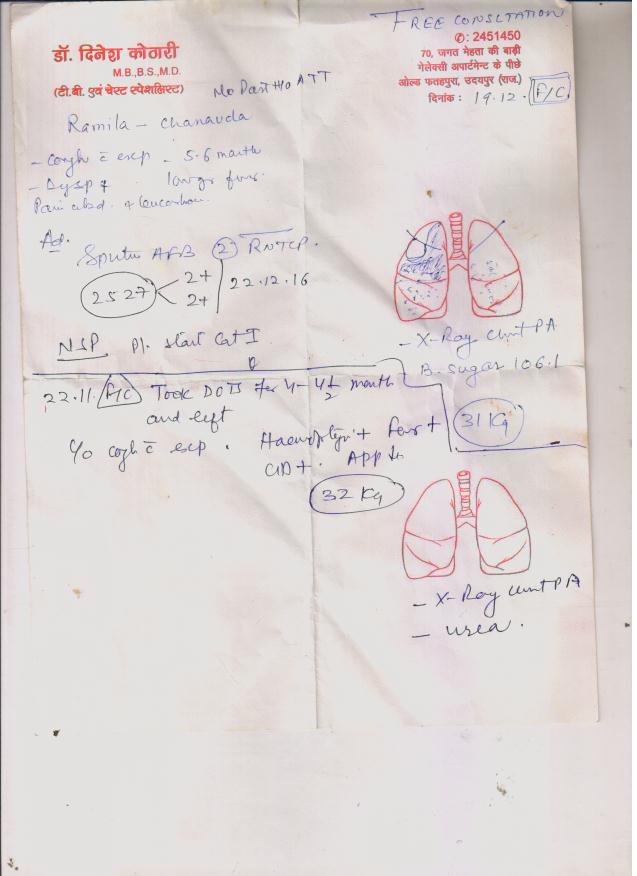 FREE CONSLTATION
डॉ. दिनेश कोठारी
M.B.,B.S.,M.D.
(टी.बी. एवं चेस्ट स्पेशलिस्ट)
✆: 2451450
70, जगत मेहता की बाड़ी
गेलेक्सी अपार्टमेन्ट के पीछे
ओल्ड फतहपुरा, उदयपुर (राज.)
दिनांक : 19.12. F/C
No Past H/o ATT
Ramila - Chanavda
- Cough c̄ exp - 5-6 month
- Dysp +
Pain abd.
Ad.
Sputum AFB (2) RNTCP.
2527 < 2+ 2+ | 22.12.16
NSP Pl. start Cat I
- X-Ray Chest PA
- B. sugar 106.1
31 Kg
22.11. F/C Took DOTS for 4 - 4½ month
and left
c/o cough c̄ exp. Haemoptysis + Fever +
App ↓
32 Kg
- X-Ray Chest PA
- urea.